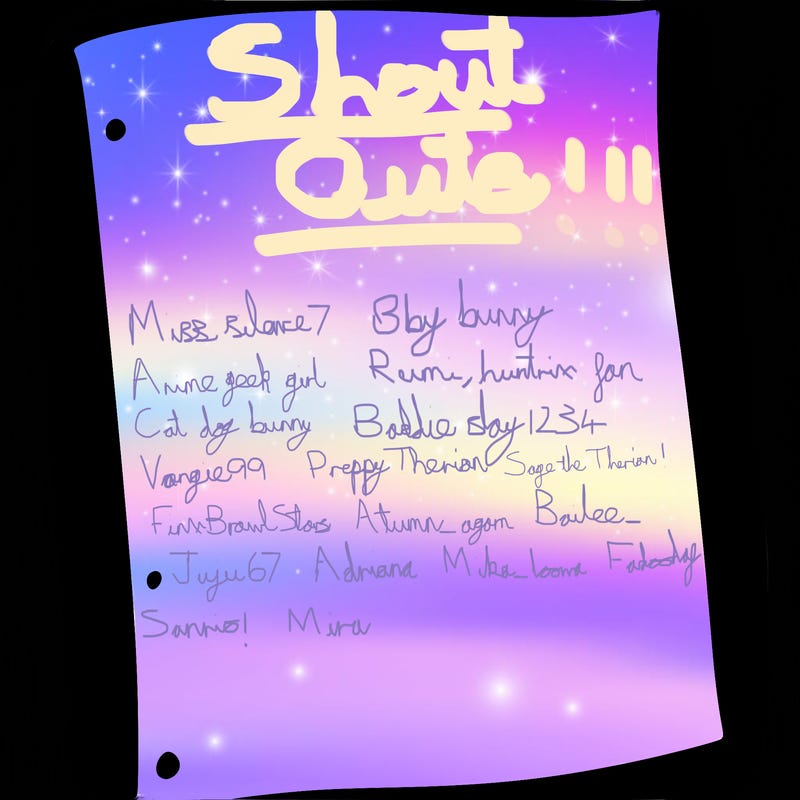 Shout
Outs!!!
Miss_silence7 Bby bunny
Anime geek girl Rumi, huntrix fan
Cat dog bunny Baddie slay1234
Vangie99 Preppy Therian Sage the Therian!
FinxBrawlStars Atumn_again Bailee_
Juju67 Adriana Mika_looma
Sanrio! Mira